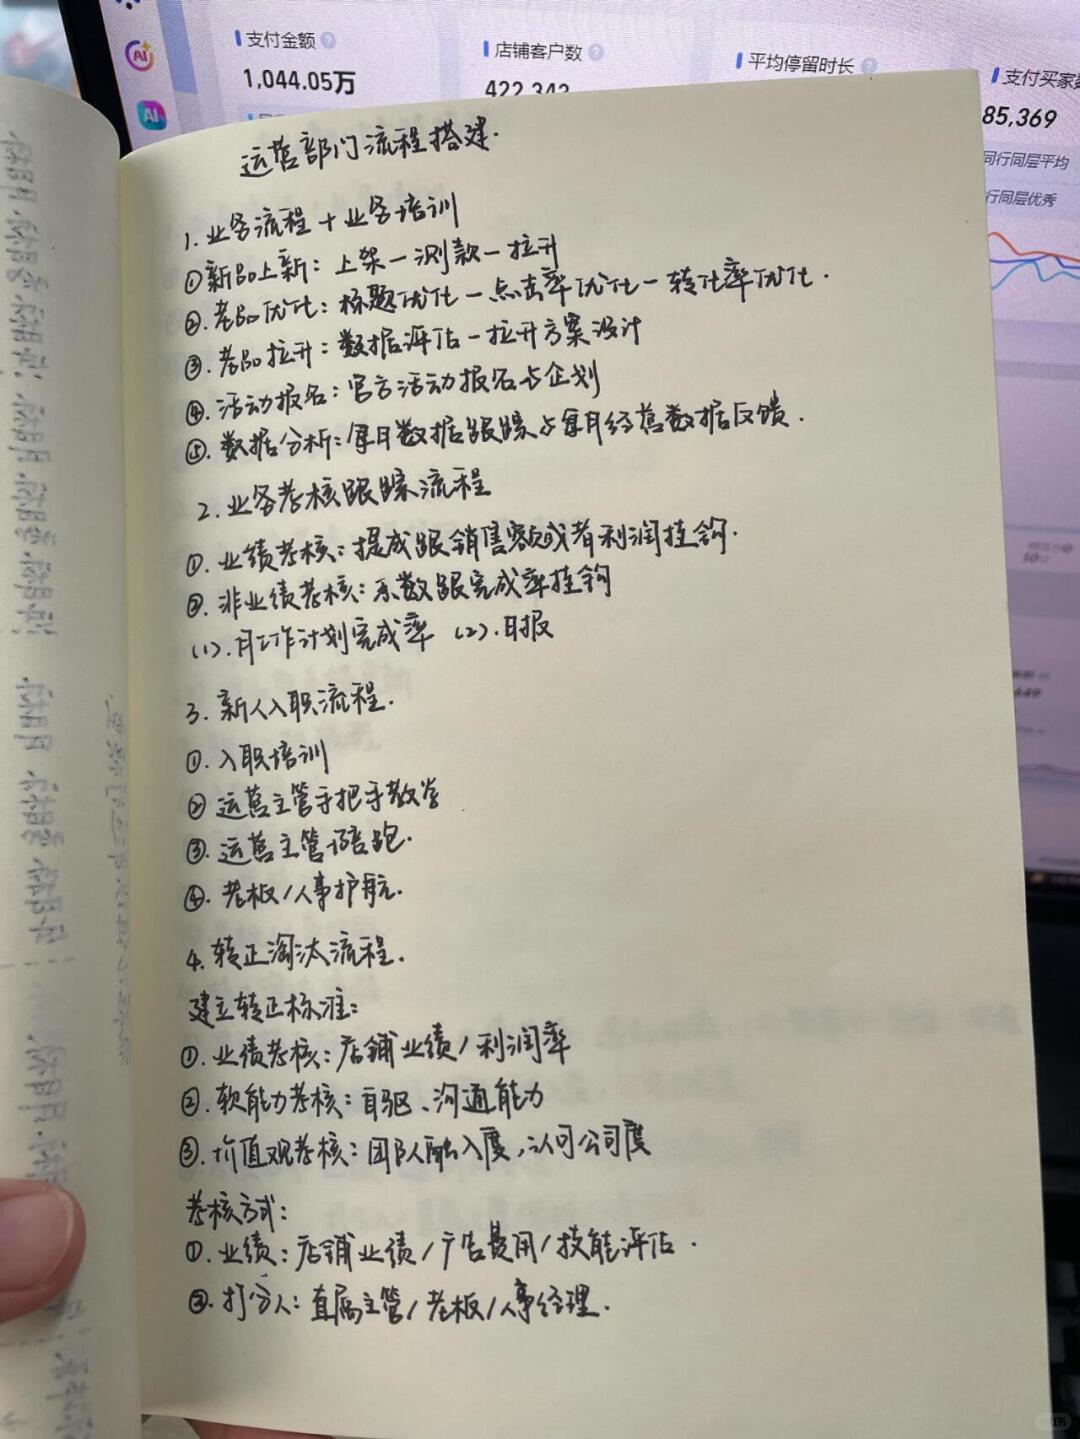 支付金额
1,044.05万
店铺客户数
422,342
平均停留时长
支付买家数
85,369
同行同层平均
行同层优秀
运营部门流程搭建.
1. 业务流程 + 业务培训
①新品上新：上架一测款一拉升
②.老品优化：标题优化一点击率优化一转化率优化.
③.老品拉升：数据评估一拉升方案设计
④.活动报名：官方活动报名与企划
⑤.数据分析：每日数据跟踪与每月经营数据反馈.
2.业务考核跟踪流程
①.业绩考核：提成跟销售额或者利润挂钩.
②.非业绩考核：系数跟完成率挂钩
(1).月工作计划完成率 (2).日报
3.新人入职流程.
①.入职培训
② 运营主管手把手教学
③.运营主管陪跑.
④.老板/人事护航.
4.转正淘汰流程.
建立转正标准：
①.业绩考核：店铺业绩/利润率
②.软能力考核：自驱、沟通能力
③.价值观考核：团队融入度,认可公司度
考核方式：
①.业绩：店铺业绩/广告费用/技能评估.
②.打分人：直属主管/老板/人事经理.
小红书